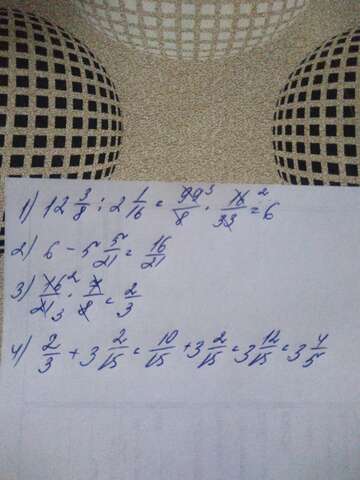 1) 12 3/8 : 2 1/16 = 99³/8 · 16²/33 = 6
2) 6 - 5 5/21 = 16/21
3) 16²/21₃ · 7/8 = 2/3
4) 2/3 + 3 2/15 = 10/15 + 3 2/15 = 3 12/15 = 3 4/5